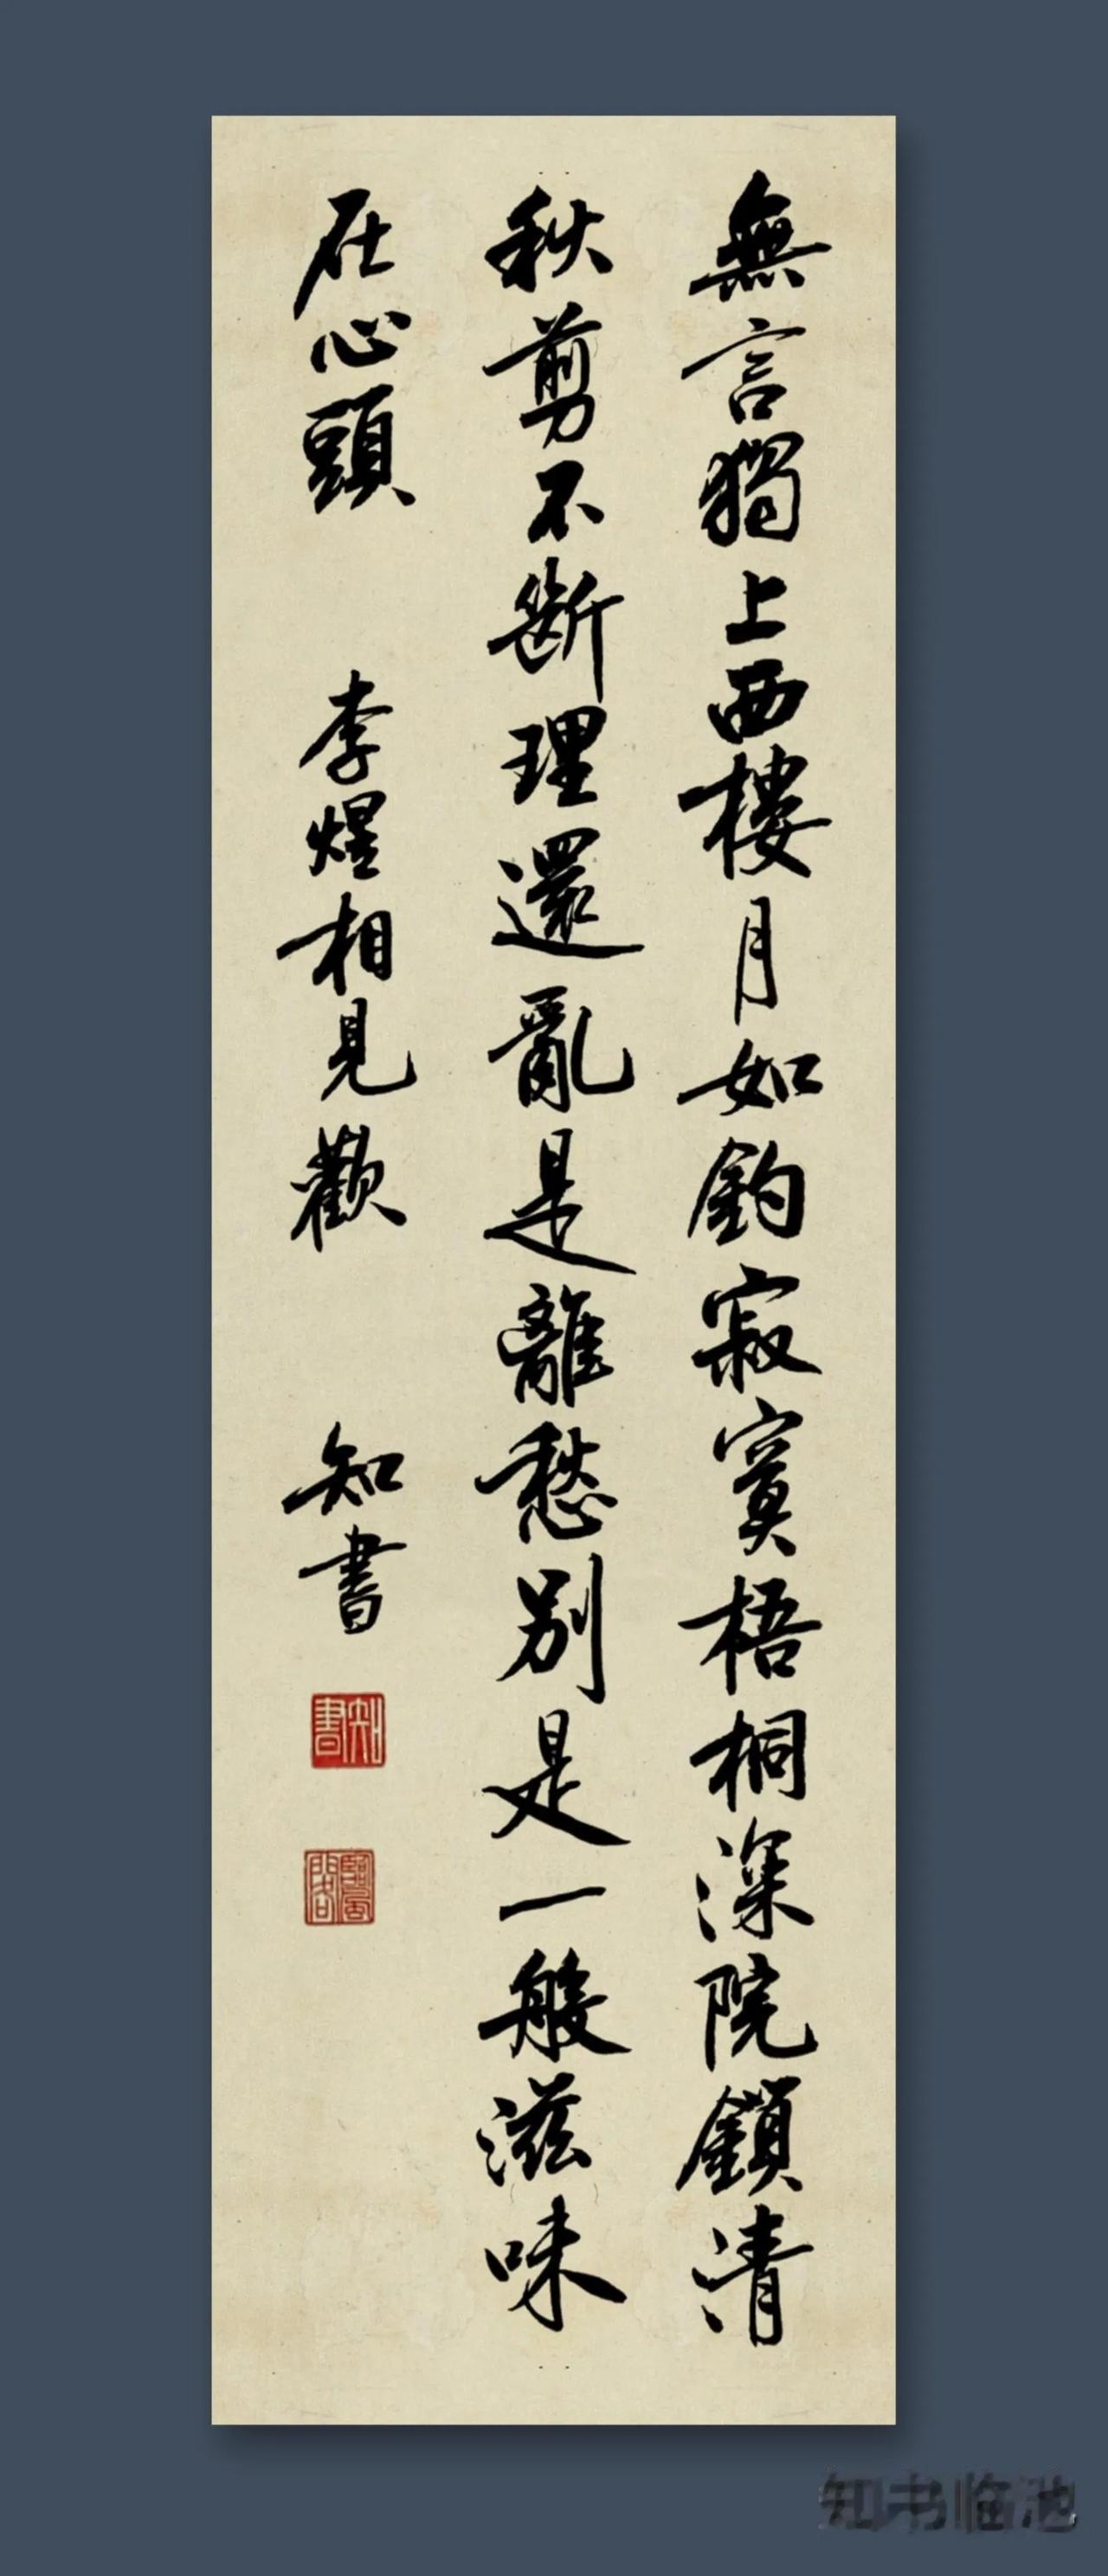 無言獨上西樓月如鈎寂寞梧桐深院鎖清
秋剪不斷理還亂是離愁別是一般滋味
在心頭 李煜相見歡 知書
知書
知书临池